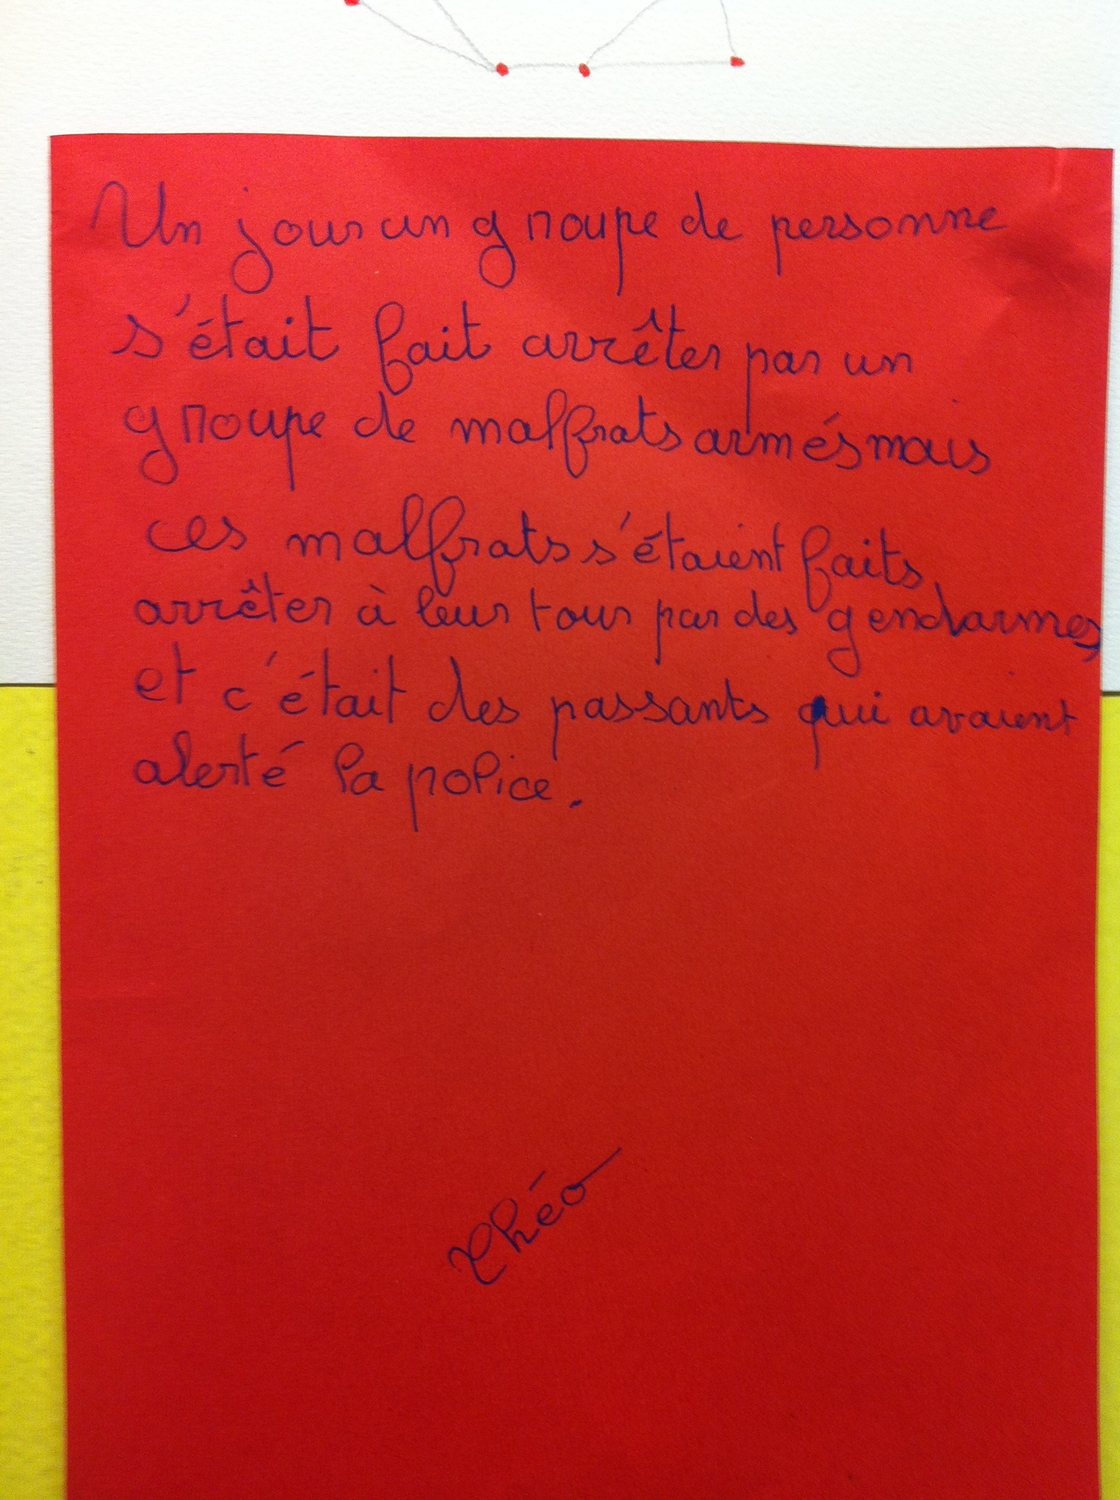 Un jour un groupe de personne
s'était fait arrêter par un
groupe de malfrats armés mais
ces malfrats s'étaient faits
arrêter à leur tour par des gendarmes
et c'était des passants qui avaient
alerté la police.
Théo